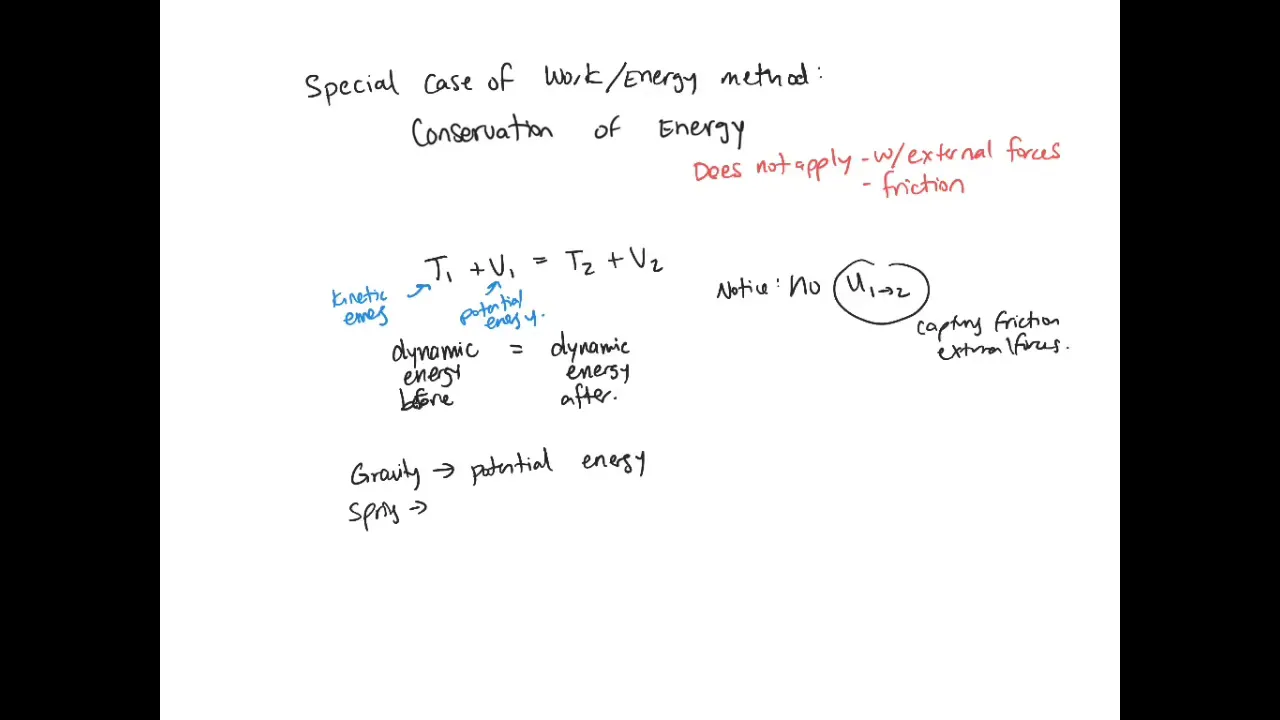 Special Case of Work/Energy method:
Conservation of Energy
Does not apply - w/external forces
- friction
T1 + V1 = T2 + V2
Notice: no U1→2
kinetic
potential
energy.
capturing friction
external forces.
dynamic = dynamic
energy energy
before after.
Gravity → potential energy
Spring →